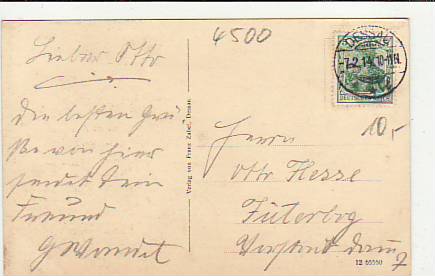 4500
Lieber Otto
die besten Grü
ße von hier
sendet Dein
Freund
G Wandt
Verlag von Franz Zabel, Dessau.
DESSAU
-7.2.14. 10-11V.
DEUTSCHES REICH
10,-
Herrn
Otto Hesse
Jüterbog
12 65550